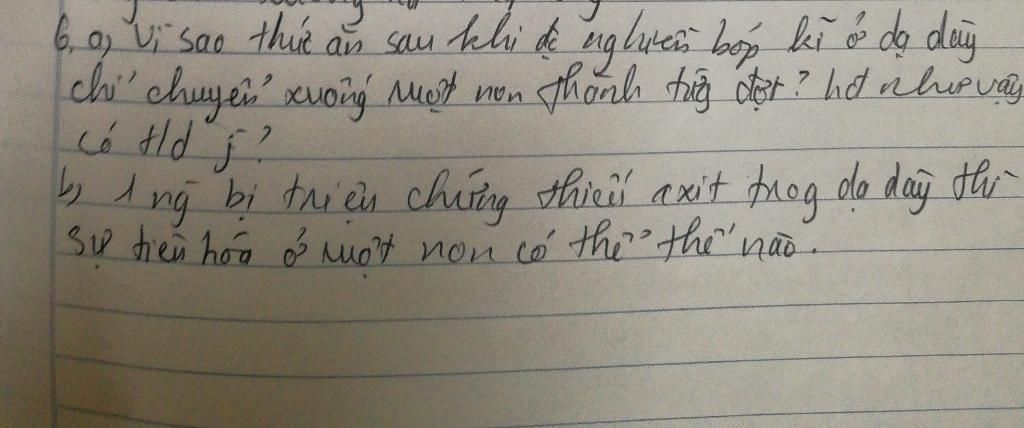 6, a, Vì sao thức ăn sau khi đc nghiền bóp kĩ ở dạ dày
chỉ chuyển xuống ruột non thành từg đợt? hđ như vậy
có t/d j?
b, 1 ng bị triệu chứng thiếu axit trog dạ dày thì
sự tiêu hóa ở ruột non có thể thế nào.